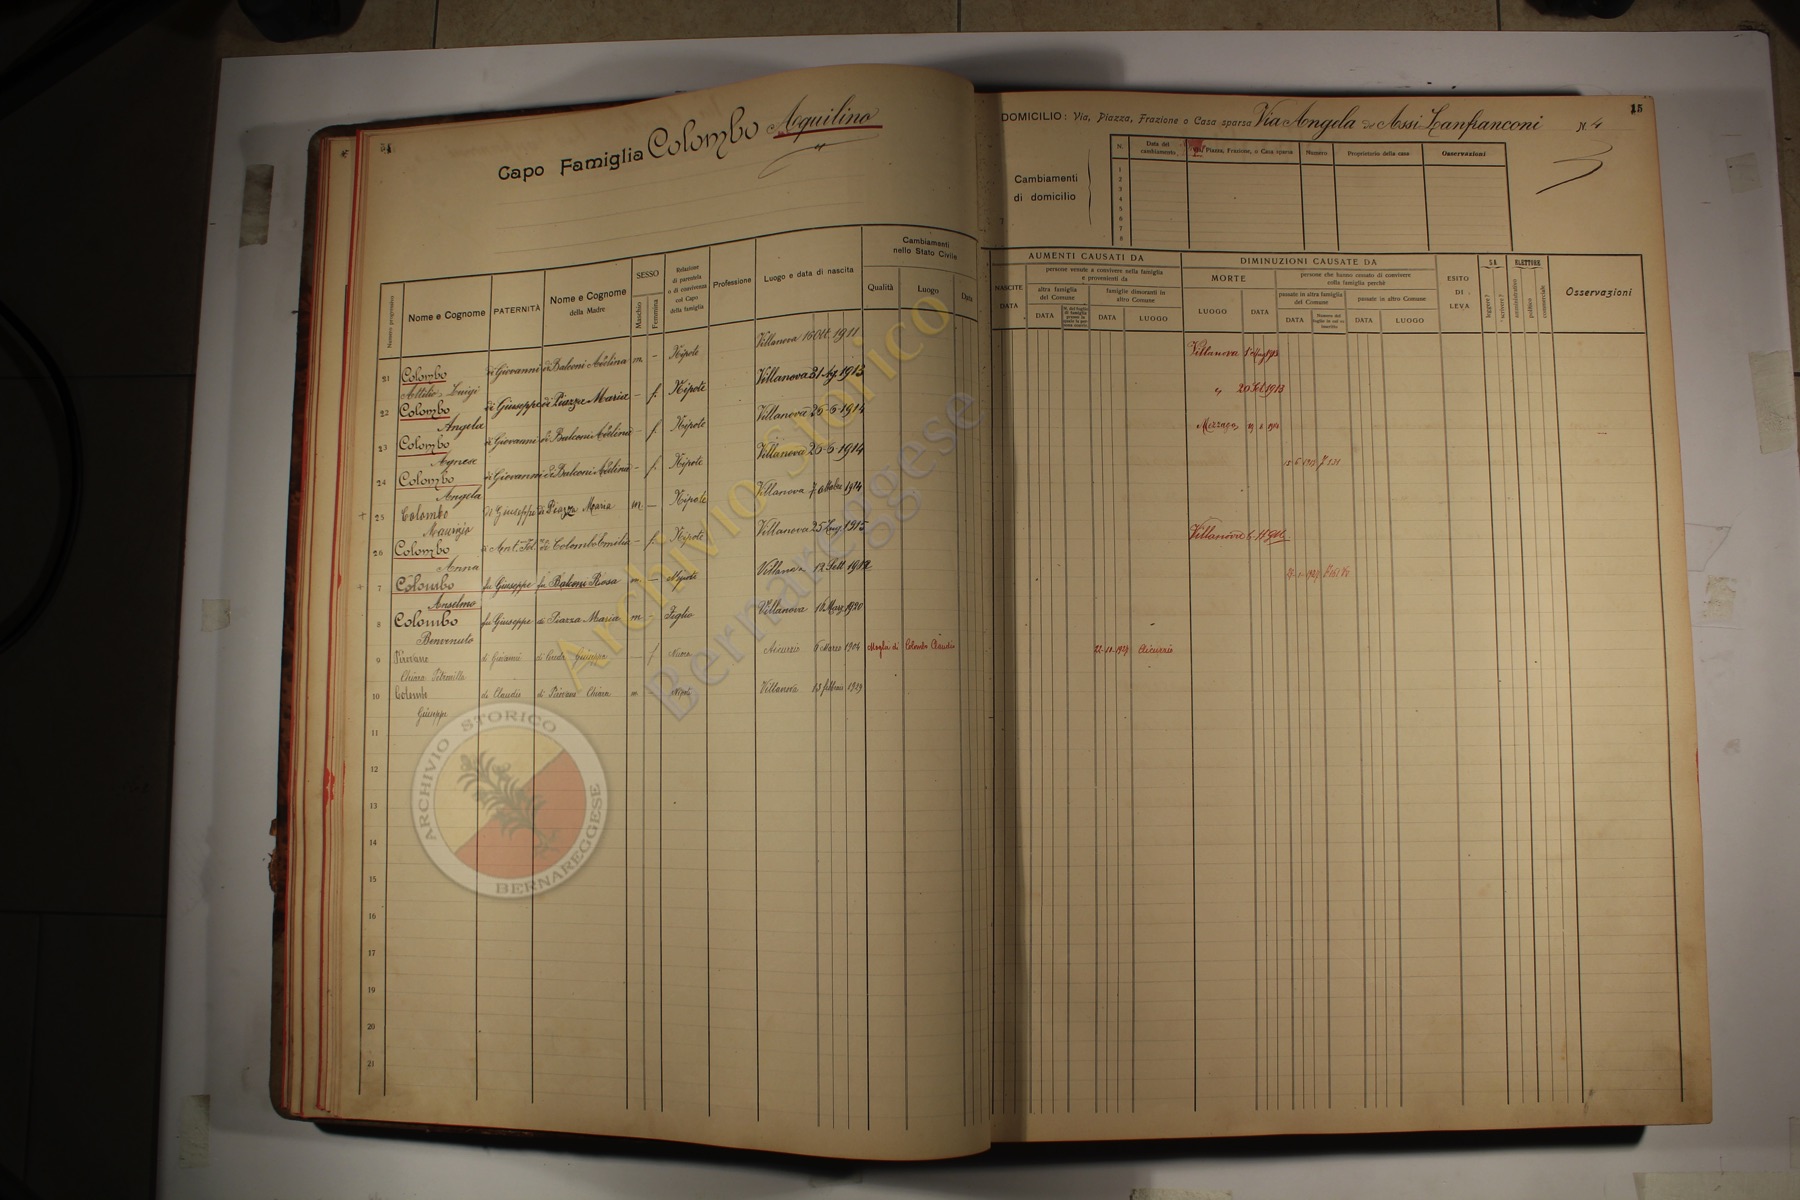 Capo Famiglia Colombo Aquilino
DOMICILIO: Via, Piazza, Frazione o Casa sparsa Via Angela De Assi Lanfranconi N. 4
15
Cambiamenti di domicilio
N. Data del cambiamento Via, Piazza, Frazione, o Casa sparsa Numero Proprietario della casa Osservazioni
1
2
3
4
5
6
7
8
Numero progressivo
Nome e Cognome
PATERNITÀ
Nome e Cognome della Madre
SESSO
Maschio
Femmina
Relazione di parentela o di convivenza col Capo della famiglia
Professione
Luogo e data di nascita
Cambiamenti nello Stato Civile
Qualità Luogo Data
NASCITE DATA
AUMENTI CAUSATI DA
persone venute a convivere nella famiglia e provenienti da
altra famiglia del Comune
famiglie dimoranti in altro Comune
DATA
DATA LUOGO
DIMINUZIONI CAUSATE DA
MORTE
LUOGO DATA
persone che hanno cessato di convivere colla famiglia perchè
passate in altra famiglia del Comune
passate in altro Comune
DATA
DATA LUOGO
ESITO DI LEVA
SA
leggere?
scrivere?
ELETTORE
amministrativo
politico
commerciale
Osservazioni
21 Colombo di Giovanni di Balconi Adelina m. – Nipote Villanova 16 Ott. 1911 Villanova
Attilio Luigi
22 Colombo di Giuseppe di Piazza Maria – f. Nipote Villanova 31 1913 „ 20 1913
Angela
23 Colombo di Giovanni di Balconi Adelina – f. Nipote Villanova 26-5-1914 Mezzago
Agnese
24 Colombo di Giovanni di Balconi Adelina – f. Nipote Villanova 26-5-1914
Angela
+ 25 Colombo di Giuseppe di Piazza Maria m – Nipote Villanova 7 Ottobre 1914
Maurizio
26 Colombo di Ant. di Colombo Emilia – f. Nipote Villanova 25 1915 Villanova
Anna
+ 7 Colombo fu Giuseppe fu Balconi Rosa m. – Nipote Villanova 12 Sett 1912
Anselmo
8 Colombo fu Giuseppe di Piazza Maria m – Figlio Villanova 16 1920
Benvenuto
9 Pirovano di Giovanni di – f Nuora Aicurzio 6 Marzo 1904 Moglie di Colombo Claudio Aicurzio
Chiara Petronilla
10 Colombo di Claudio di Pirovano Chiara m Nipote Villanova 13 febbraio 1929
Giuseppe
11
12
13
14
15
16
17
18
19
20
21
Archivio Storico
Bernareggese
ARCHIVIO STORICO
BERNAREGGESE